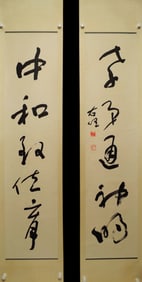 孝弟通神明
右任
中和致位育